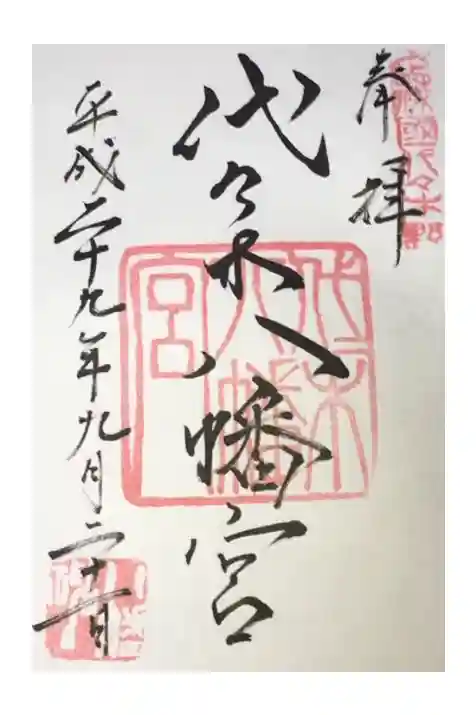 武蔵國代々木野
奉拝
代々木八幡宮
代々木八幡宮
平成二十九年九月二十一日